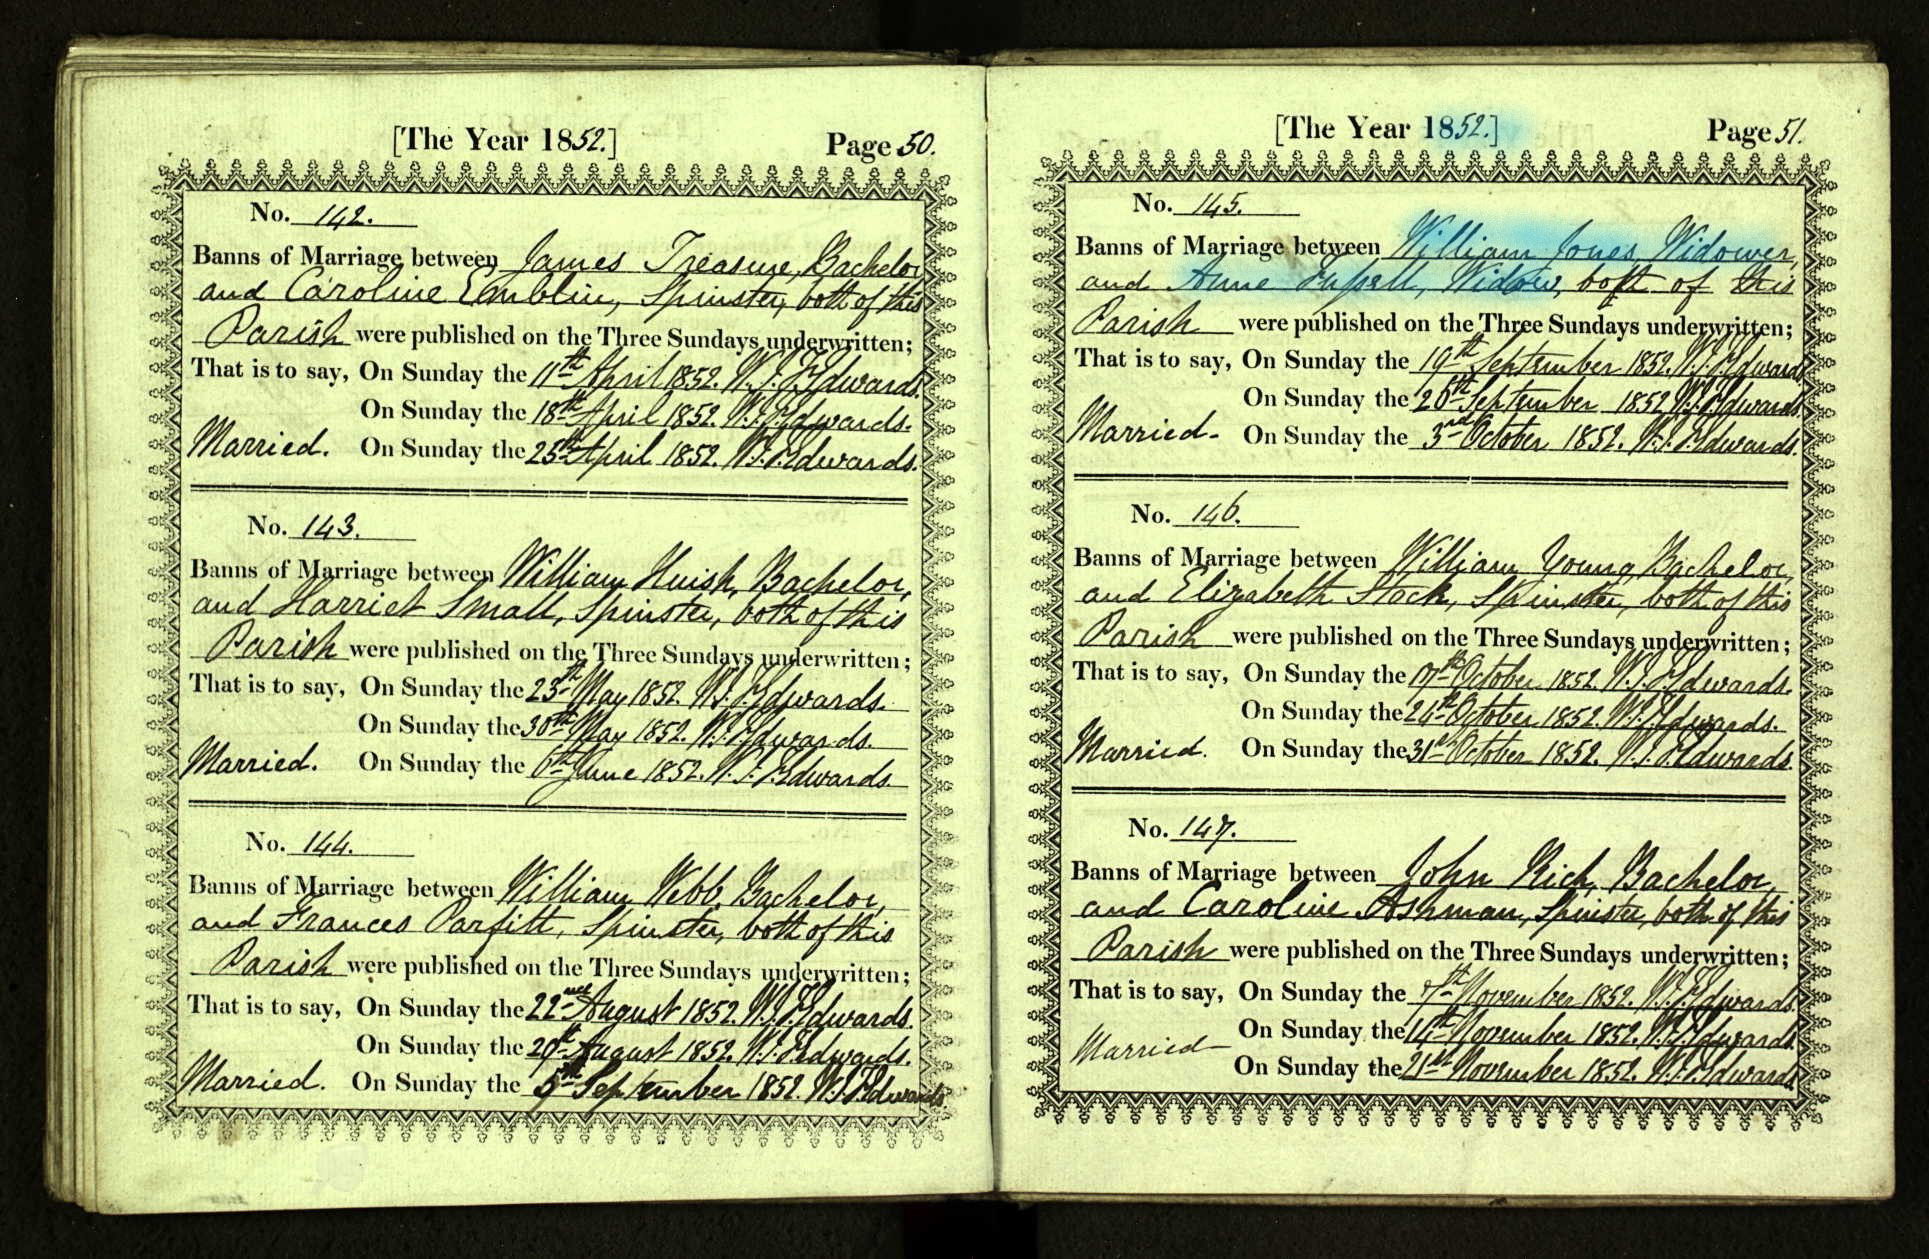 [The Year 1852.]
Page 50.
No. 142.
Banns of Marriage between James Treasure, Bachelor
and Caroline Emblin, Spinster, both of this
Parish were published on the Three Sundays underwritten;
That is to say, On Sunday the 11th April 1852. W.J.Edwards.
On Sunday the 18th April 1852. W.J.Edwards.
Married. On Sunday the 25th April 1852. W.J.Edwards.
No. 143.
Banns of Marriage between William Huish, Bachelor,
and Harriet Small, Spinster, both of this
Parish were published on the Three Sundays underwritten;
That is to say, On Sunday the 23th May 1852. W.J.Edwards.
On Sunday the 30th May 1852. W.J.Edwards.
Married. On Sunday the 6th June 1852. W.J.Edwards.
No. 144.
Banns of Marriage between William Webb, Bachelor,
and Frances Parfitt, Spinster, both of this
Parish were published on the Three Sundays underwritten;
That is to say, On Sunday the 22nd August 1852. W.J.Edwards.
On Sunday the 29th August 1852. W.J.Edwards.
Married. On Sunday the 5th September 1852. W.J.Edwards
[The Year 1852.]
Page 51.
No. 145.
Banns of Marriage between William Jones, Widower,
and Anne Widow, both of this
Parish were published on the Three Sundays underwritten;
That is to say, On Sunday the 19th September 1852. W.J.Edwards
On Sunday the 26th September 1852 W.J.Edwards.
Married- On Sunday the 3rd October 1852. W.J.Edwards.
No. 146.
Banns of Marriage between William Young, Bachelor,
and Elizabeth Stock, Spinster, both of this
Parish were published on the Three Sundays underwritten;
That is to say, On Sunday the 17th October 1852. W.J.Edwards.
On Sunday the 24th October 1852. W.J.Edwards.
Married. On Sunday the 31st October 1852. W.J.Edwards.
No. 147.
Banns of Marriage between John Rich, Bachelor,
and Caroline Ashman, Spinster, both of this
Parish were published on the Three Sundays underwritten;
That is to say, On Sunday the 7th November 1852. W.J.Edwards.
On Sunday the 14th November 1852. W.J.Edwards.
Married— On Sunday the 21st November 1852. W.J.Edwards.